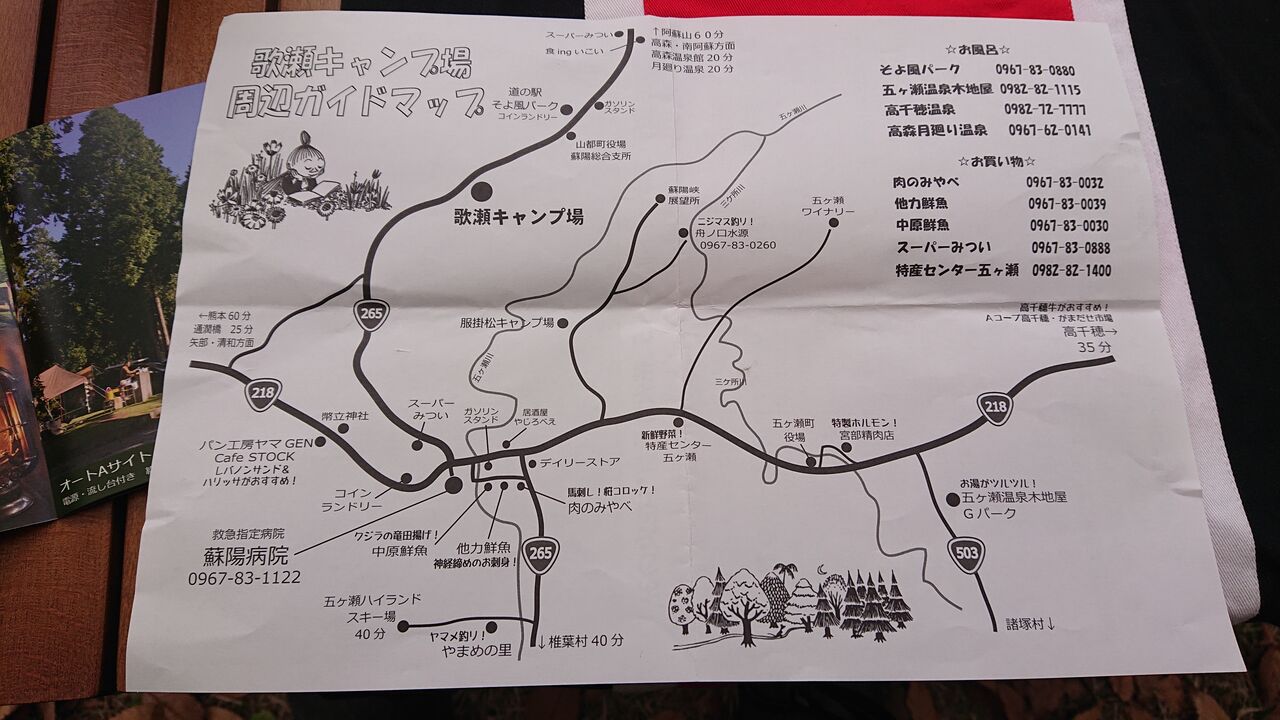 歌瀬キャンプ場
周辺ガイドマップ
スーパーみつい
食ingいこい
↑阿蘇山60分
高森・南阿蘇方面
高森温泉館20分
月廻り温泉20分
道の駅
そよ風パーク
コインランドリー
ガソリン
スタンド
山都町役場
蘇陽総合支所
歌瀬キャンプ場
☆お風呂☆
そよ風パーク 0967-83-0880
五ヶ瀬温泉木地屋 0982-82-1115
高千穂温泉 0982-72-7777
高森月廻り温泉 0967-62-0141
☆お買い物☆
肉のみやべ 0967-83-0032
他力鮮魚 0967-83-0039
中原鮮魚 0967-83-0030
スーパーみつい 0967-83-0888
特産センター五ヶ瀬 0982-82-1400
五ヶ瀬川
三ケ所川
蘇陽峡
展望所
ニジマス釣り!
舟ノ口水源
0967-83-0260
五ヶ瀬
ワイナリー
265
服掛松キャンプ場
五ヶ瀬川
三ケ所川
←熊本60分
通潤橋 25分
矢部・清和方面
高千穂牛がおすすめ!
Aコープ高千穂・がまだせ市場
高千穂→
35分
218
218
幣立神社
スーパー
みつい
ガソリン
スタンド
居酒屋
やじろべえ
パン工房ヤマGEN
Cafe STOCK
レバノンサンド&
ハリッサがおすすめ!
コイン
ランドリー
デイリーストア
新鮮野菜!
特産センター
五ヶ瀬
五ヶ瀬町
役場
特製ホルモン!
宮部精肉店
馬刺し!糀コロッケ!
肉のみやべ
お湯がツルツル!
五ヶ瀬温泉木地屋
Gパーク
救急指定病院
蘇陽病院
0967-83-1122
クジラの竜田揚げ!
中原鮮魚
他力鮮魚
神経締めのお刺身!
265
503
五ヶ瀬ハイランド
スキー場
40分
ヤマメ釣り!
やまめの里
↓椎葉村40分
諸塚村↓
オートAサイト
電源・流し台付き